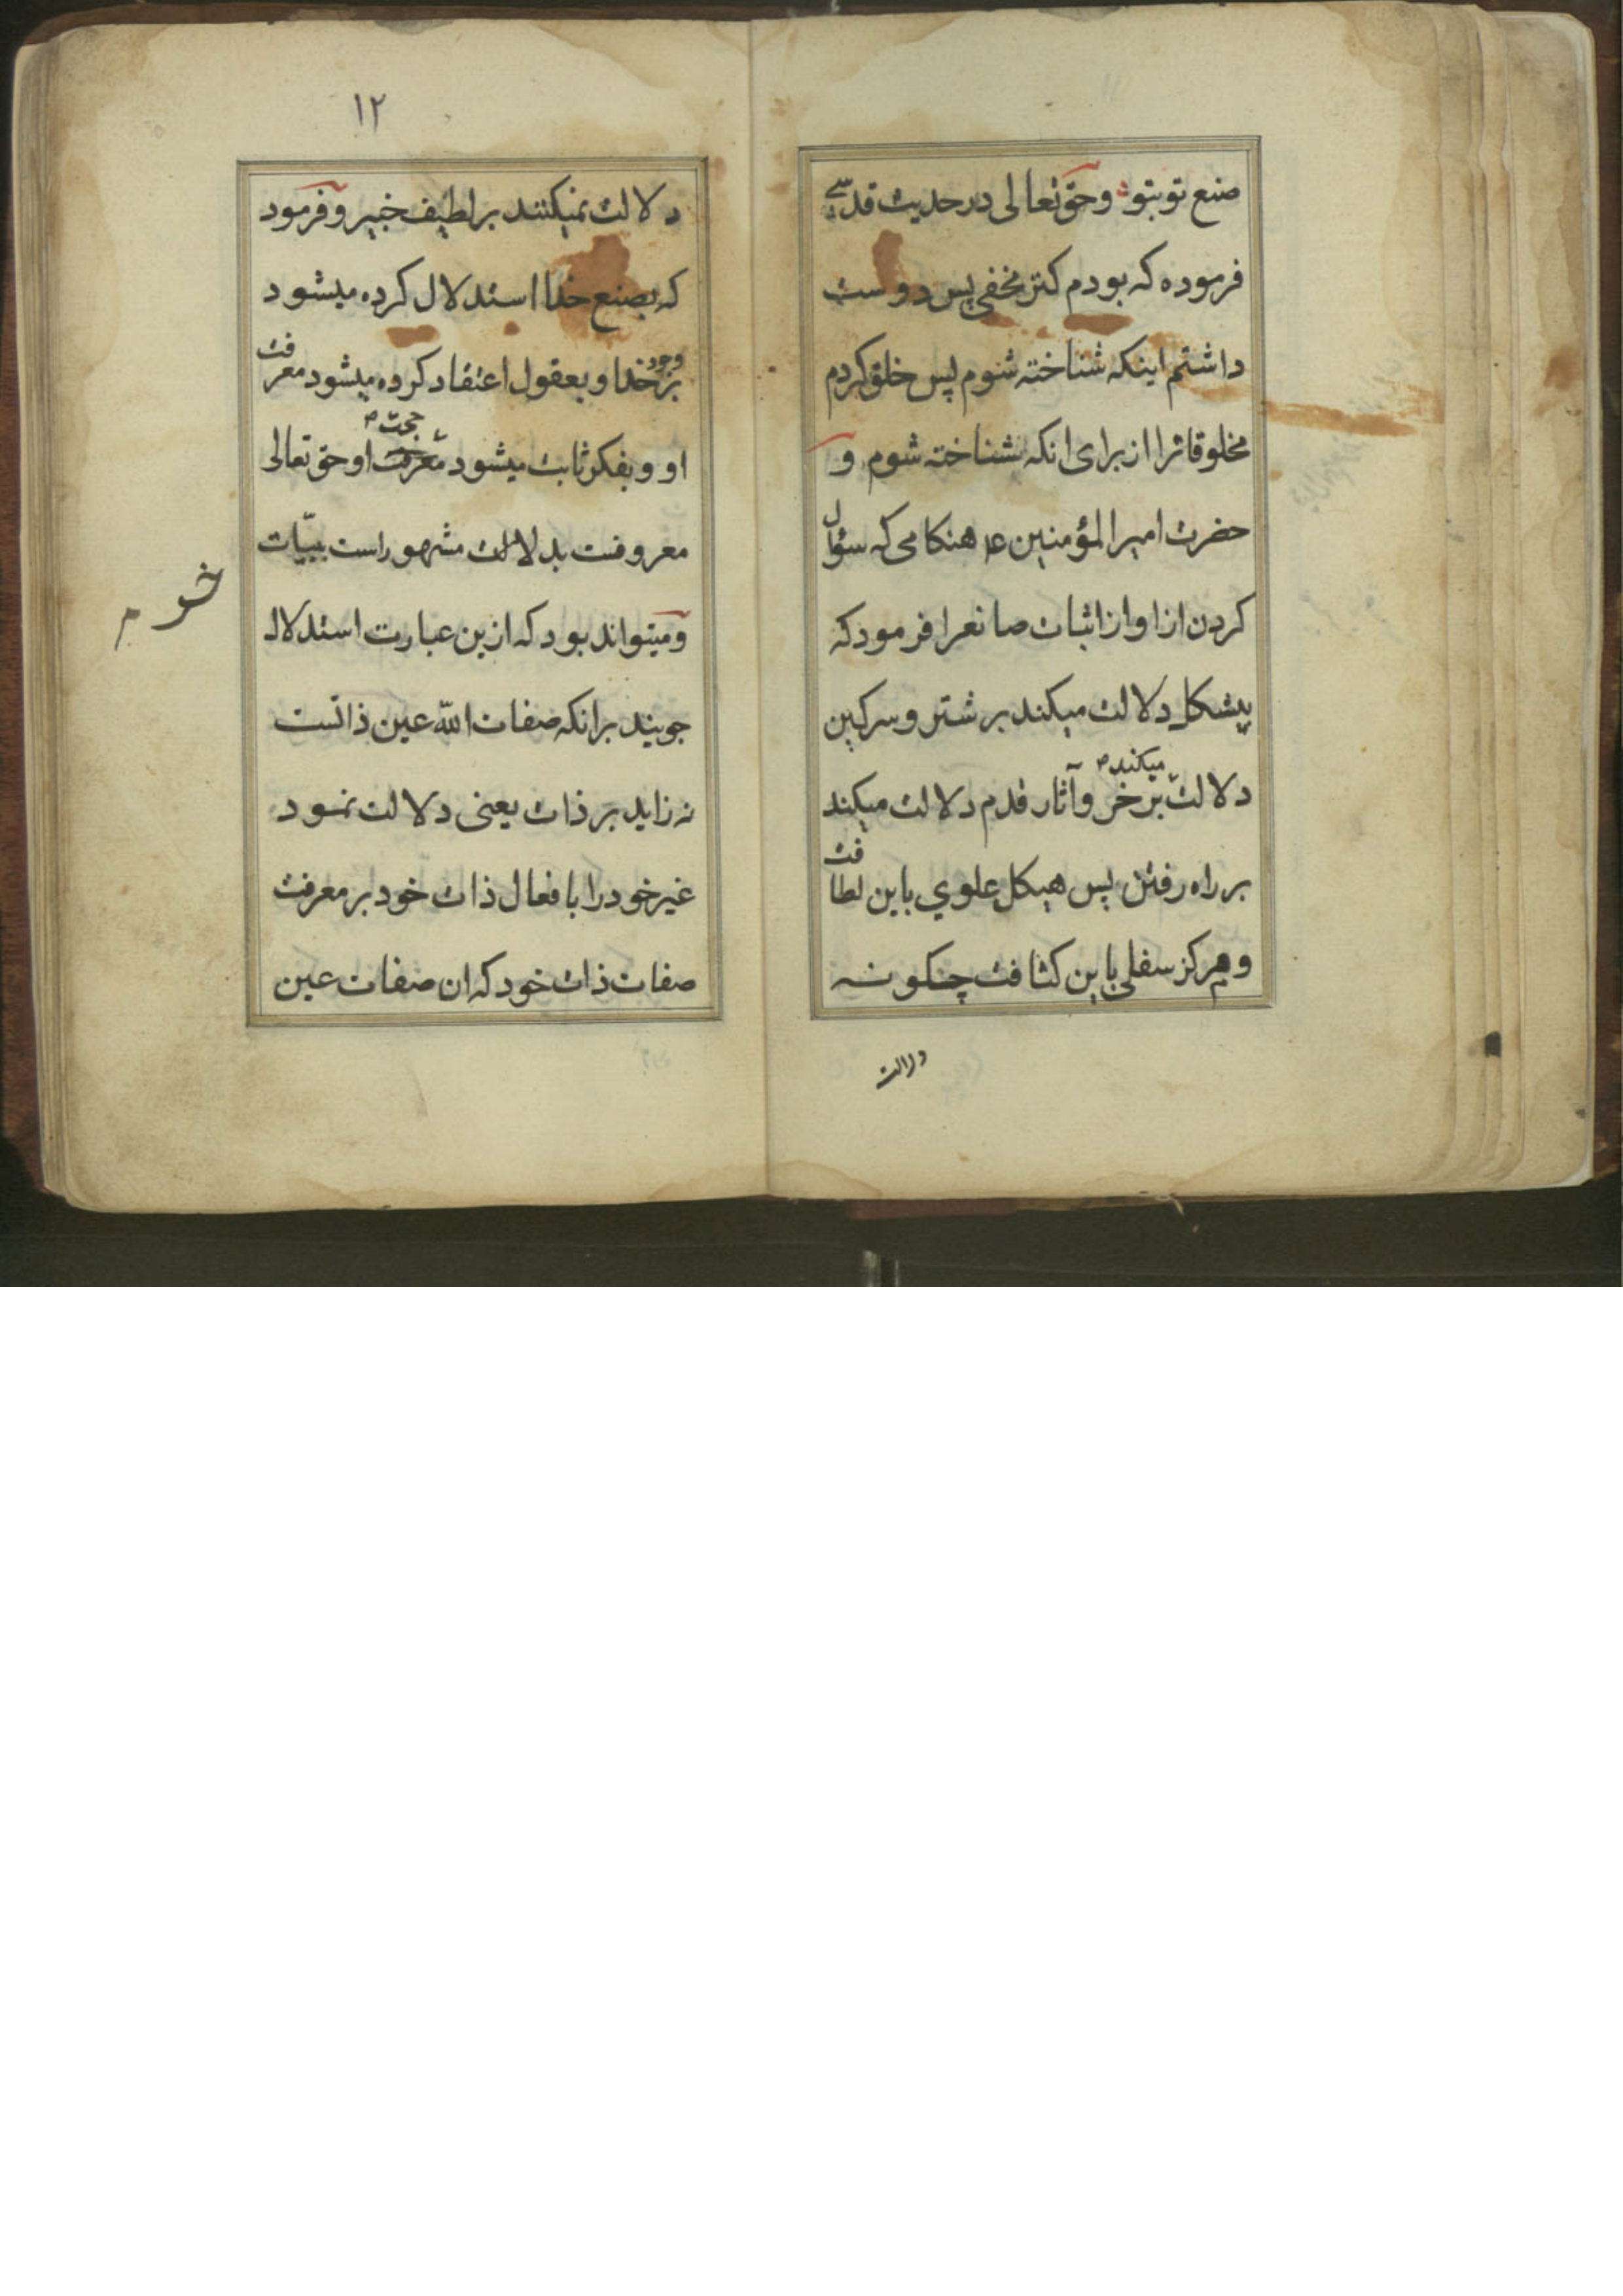 صنع تو بتو و حق تعالی در حدیث قدسی
فرموده که بودم کنز مخفی پس دوست
داشتم اینکه شناخته شوم پس خلق کردم
مخلوقاترا از برای انکه شناخته شوم و
حضرت امیر المؤمنین ع هنکامی که سؤال
کردن از او از اثبات صانعرا فرمود که
پشکل دلالت میکند بر شتر و سرکین
دلالت میکند بر خر و آثار قدم دلالت میکند
بر راه رفتن پس هیکل علوی باین لطافت
و مرکز سفلی باین کثافت چنکونه
دلالت
۱۲
دلالت نمیکنند بر لطیف خبیر و فرمود
که بصنع خدا استدلال کرده میشود
بر وجود خدا و بعقول اعتقاد کرده میشود معرفت
او و بفکر ثابت میشود حجت او حق تعالی
معروفست بدلالت مشهور است ببینات
و میتواند بود که ازین عبارت استدلال
جویند برانکه صفات الله عین ذاتست
نه زاید بر ذات یعنی دلالت نمود
غیر خود را بافعال ذات خود بر معرفت
صفات ذات خود که ان صفات عین